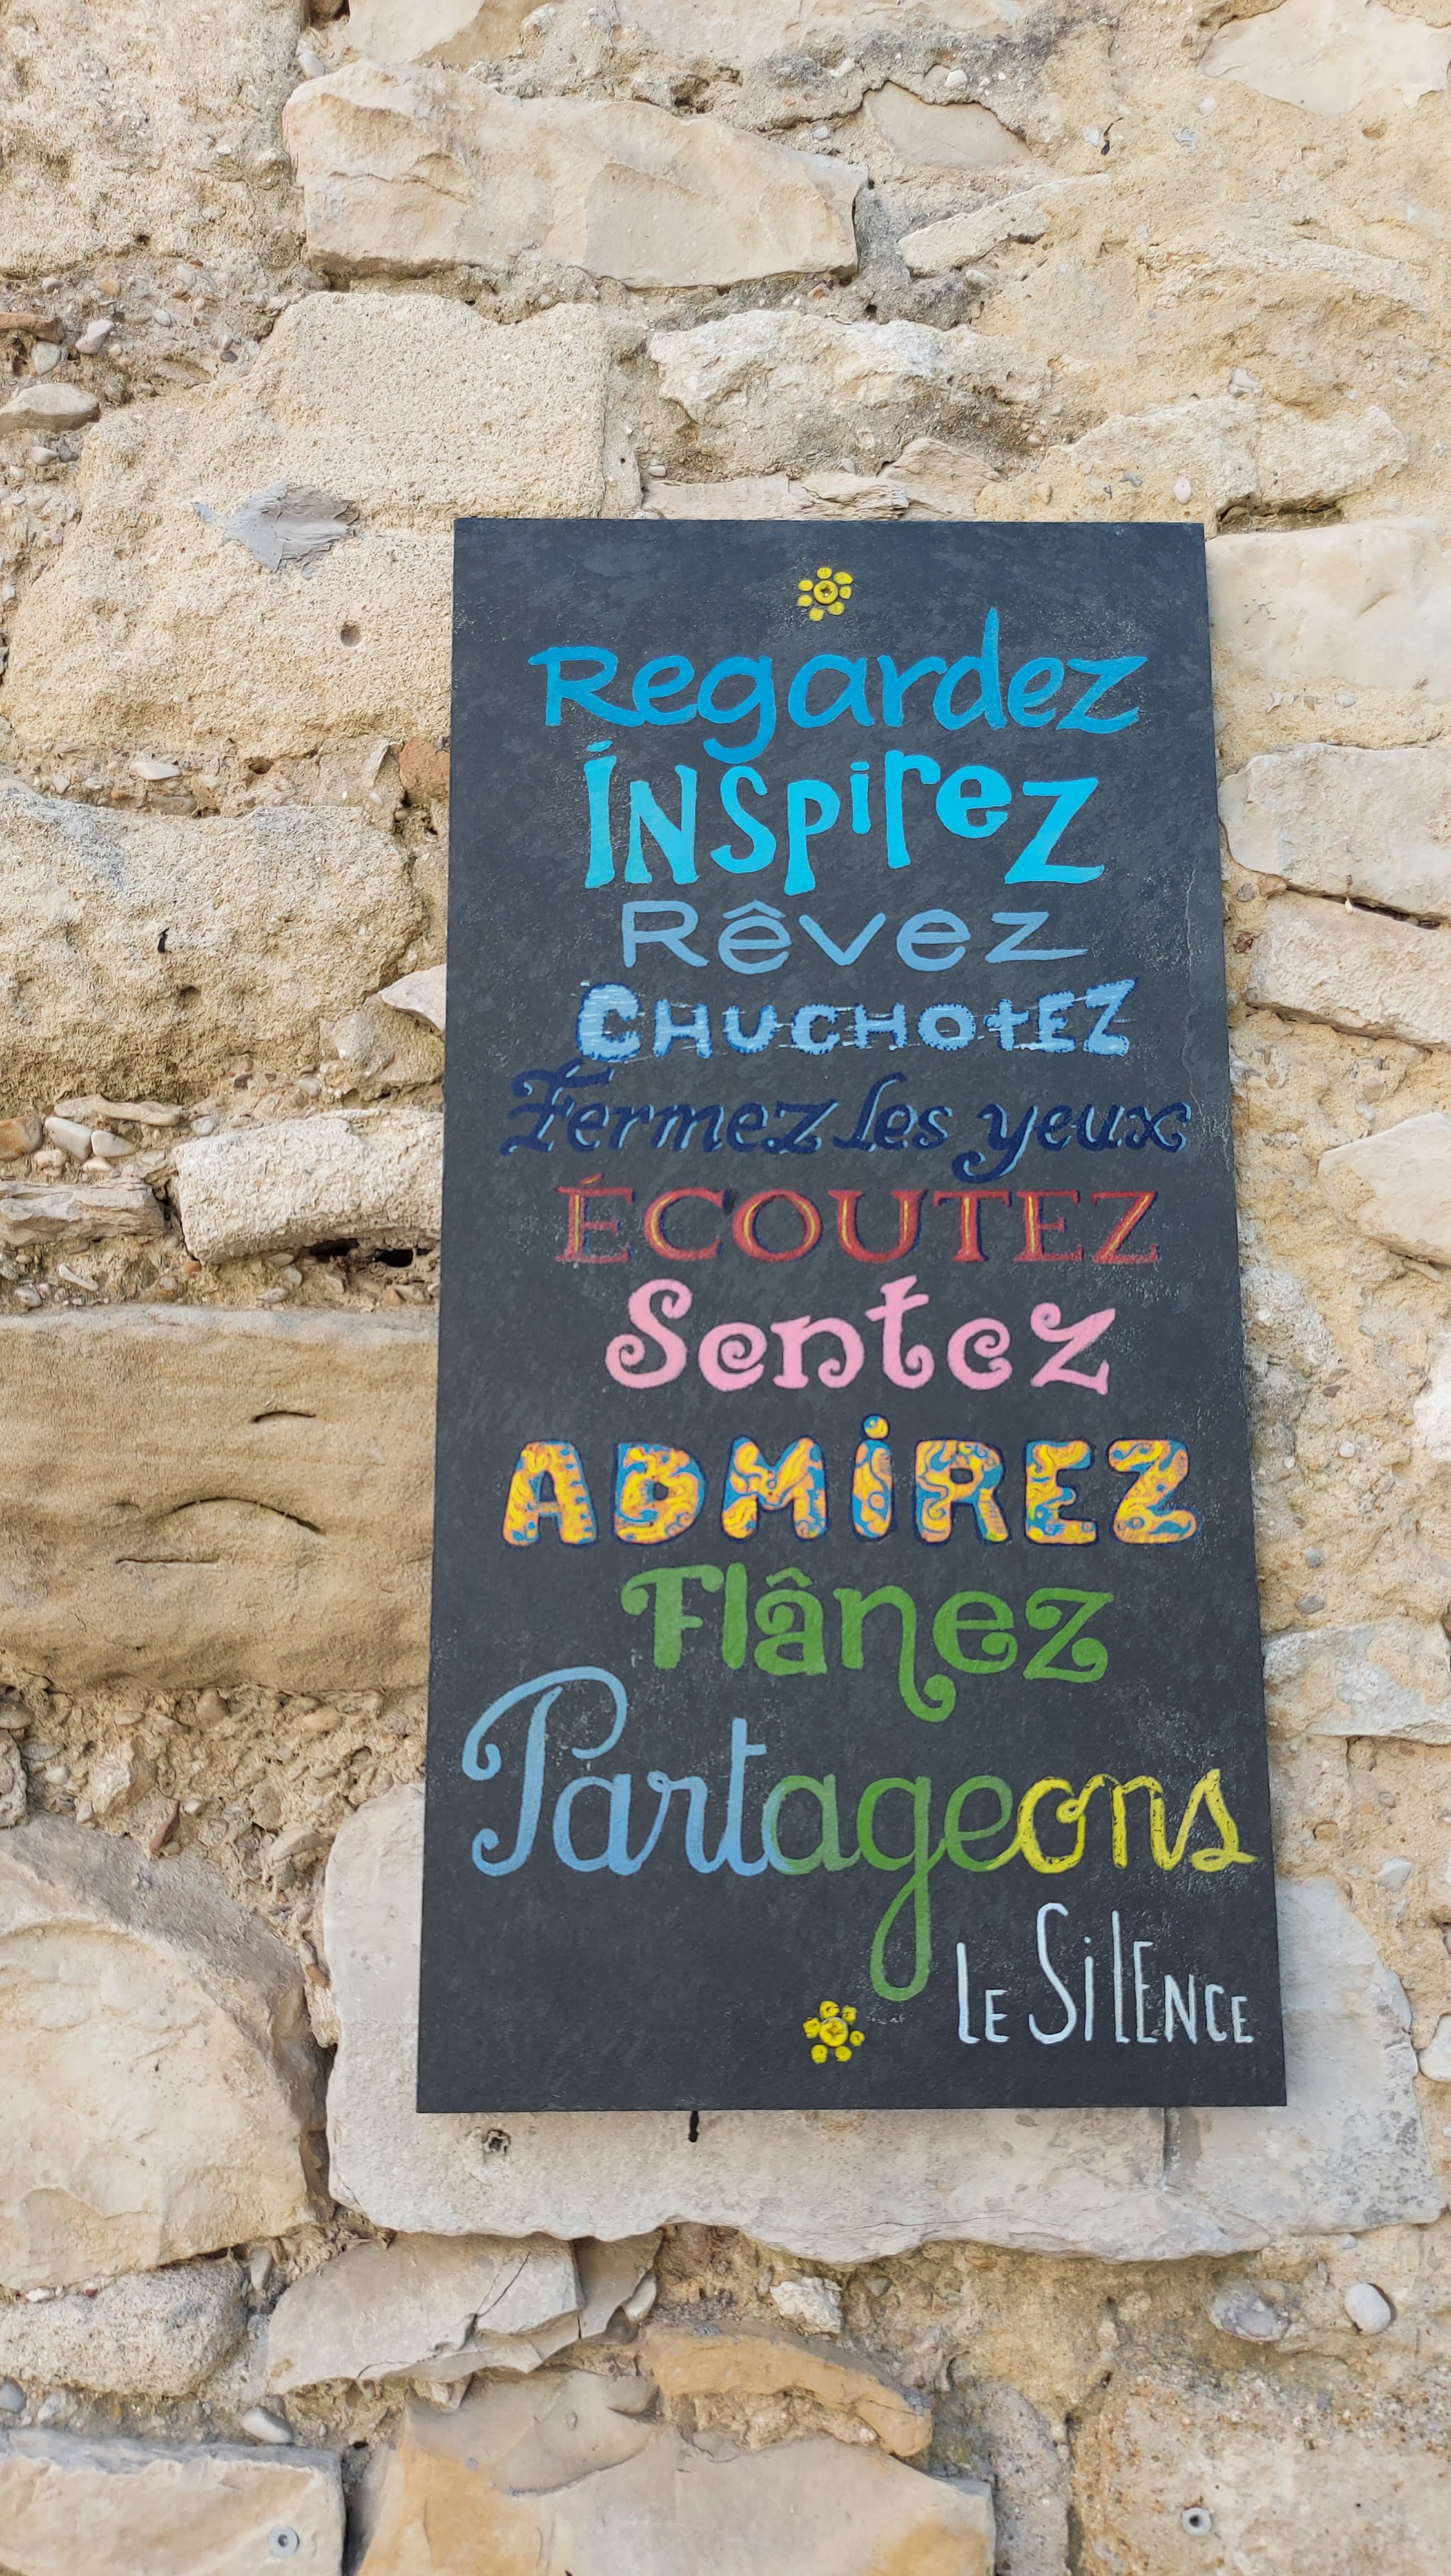 Regardez
iNspirez
Rêvez
CHUCHOtEZ
Fermez les yeux
ÉCOUTEZ
Sentez
ADMiREZ
Flânez
Partageons
LE SilENCE